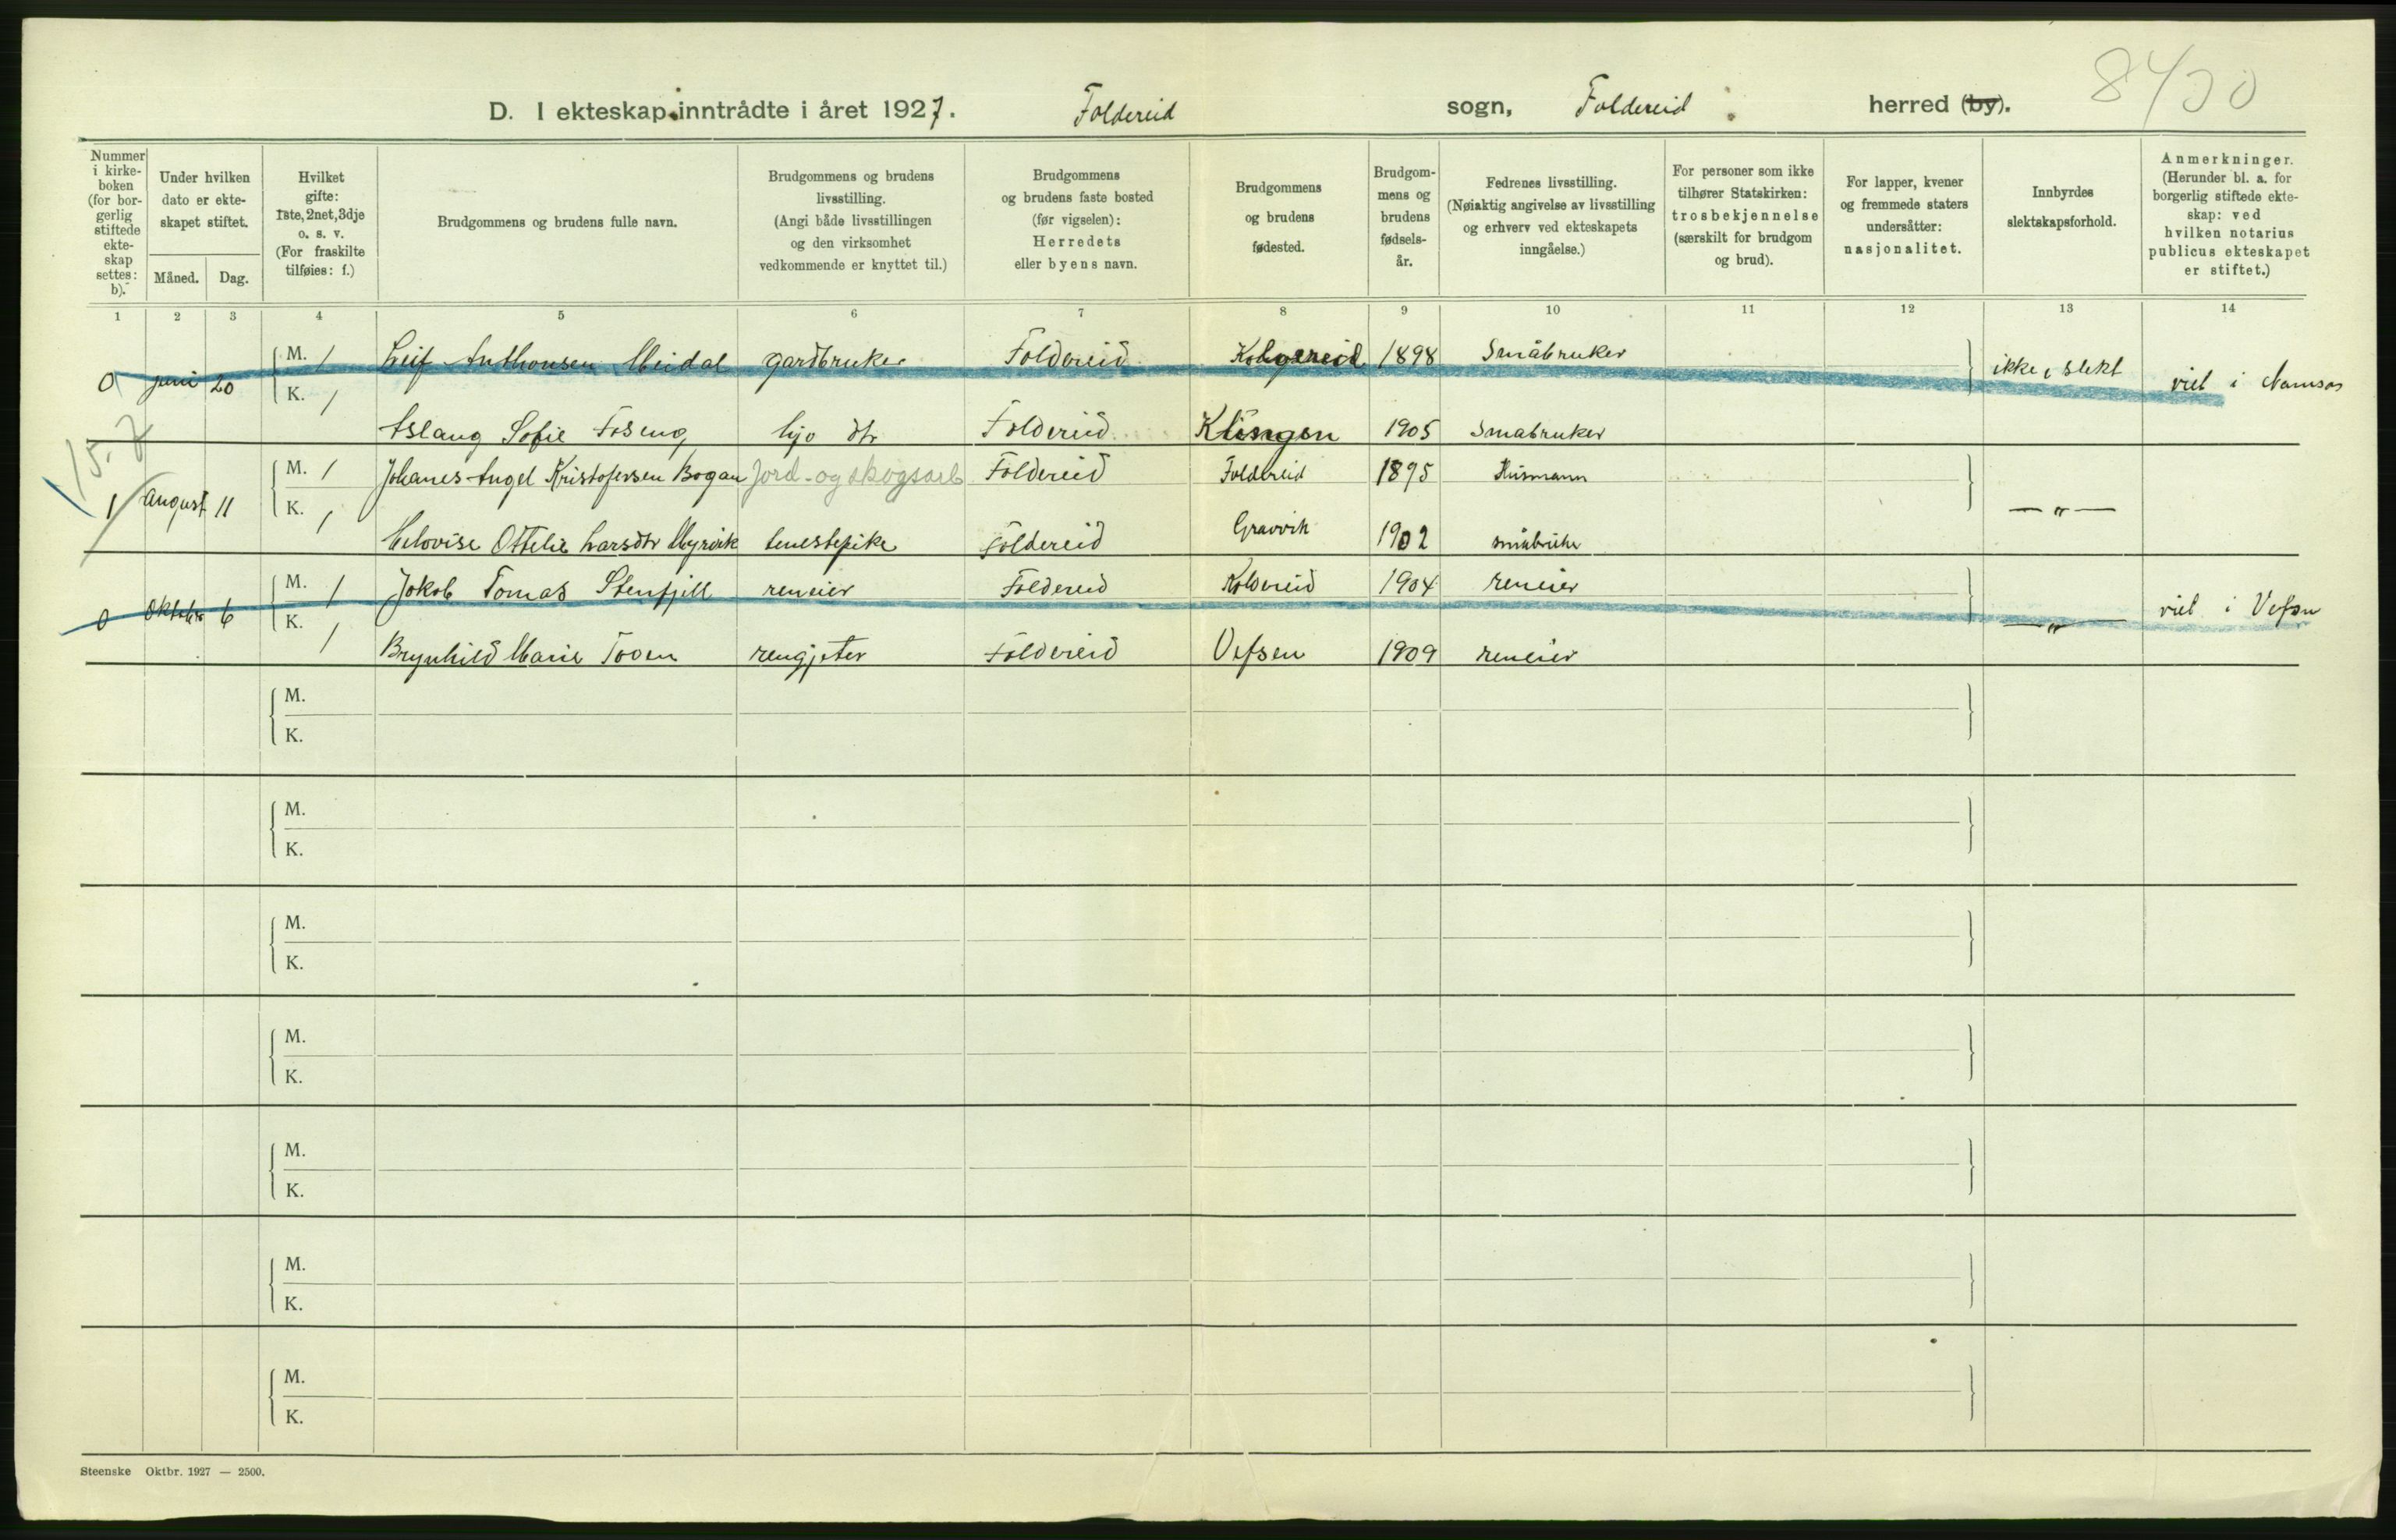 8430
D. I ekteskap inntrådte i året 1927. Foldereid sogn, Foldereid herred (by).
Nummer i kirkeboken (for borgerlig stiftede ekteskap settes: b).
Under hvilken dato er ekteskapet stiftet.
Måned.
Dag.
Hvilket gifte: 1ste, 2net, 3dje o. s. v. (For fraskilte tilføies: f.)
Brudgommens og brudens fulle navn.
Brudgommens og brudens livsstilling. (Angi både livsstillingen og den virksomhet vedkommende er knyttet til.)
Brudgommens og brudens faste bosted (før vigselen): Herredets eller byens navn.
Brudgommens og brudens fødested.
Brudgommens og brudens fødselsår.
Fedrenes livsstilling. (Nøiaktig angivelse av livsstilling og erhverv ved ekteskapets inngåelse.)
For personer som ikke tilhører Statskirken: trosbekjennelse (særskilt for brudgom og brud).
For lapper, kvener og fremmede staters undersåtter: nasjonalitet.
Innbyrdes slektskapsforhold.
Anmerkninger. (Herunder bl. a. for borgerlig stiftede ekteskap: ved hvilken notarius publicus ekteskapet er stiftet.)
1 2 3 4 5 6 7 8 9 10 11 12 13 14
0 juni 20 M. 1 Leif Anthonsen Meidal gardbruker Foldereid Kolvereid 1898 Småbruker ikke i slekt viet i Namsos
K. 1 Aslaug Sofie Foseng hjv dtr Foldereid Klingen 1905 Småbruker
15.7
1 August 11 M. 1 Johanes Angel Kristofersen Bogan Jord- og skogsarb Foldereid Foldereid 1895 Husmann — " —
K. 1 Helovise Ottelie Larsdtr Myrvik tenestepike Foldereid Gravvik 1902 småbruker
0 Oktober 6 M. 1 Jakob Tomas Stenfjell reneier Foldereid Kolvereid 1904 reneier — " — viet i Vefsn
K. 1 Brynhild Marie Toven rengjeter Foldereid Vefsen 1909 reneier
M.
K.
M.
K.
M.
K.
M.
K.
M.
K.
M.
K.
M.
K.
Steenske Oktbr. 1927 — 2500.